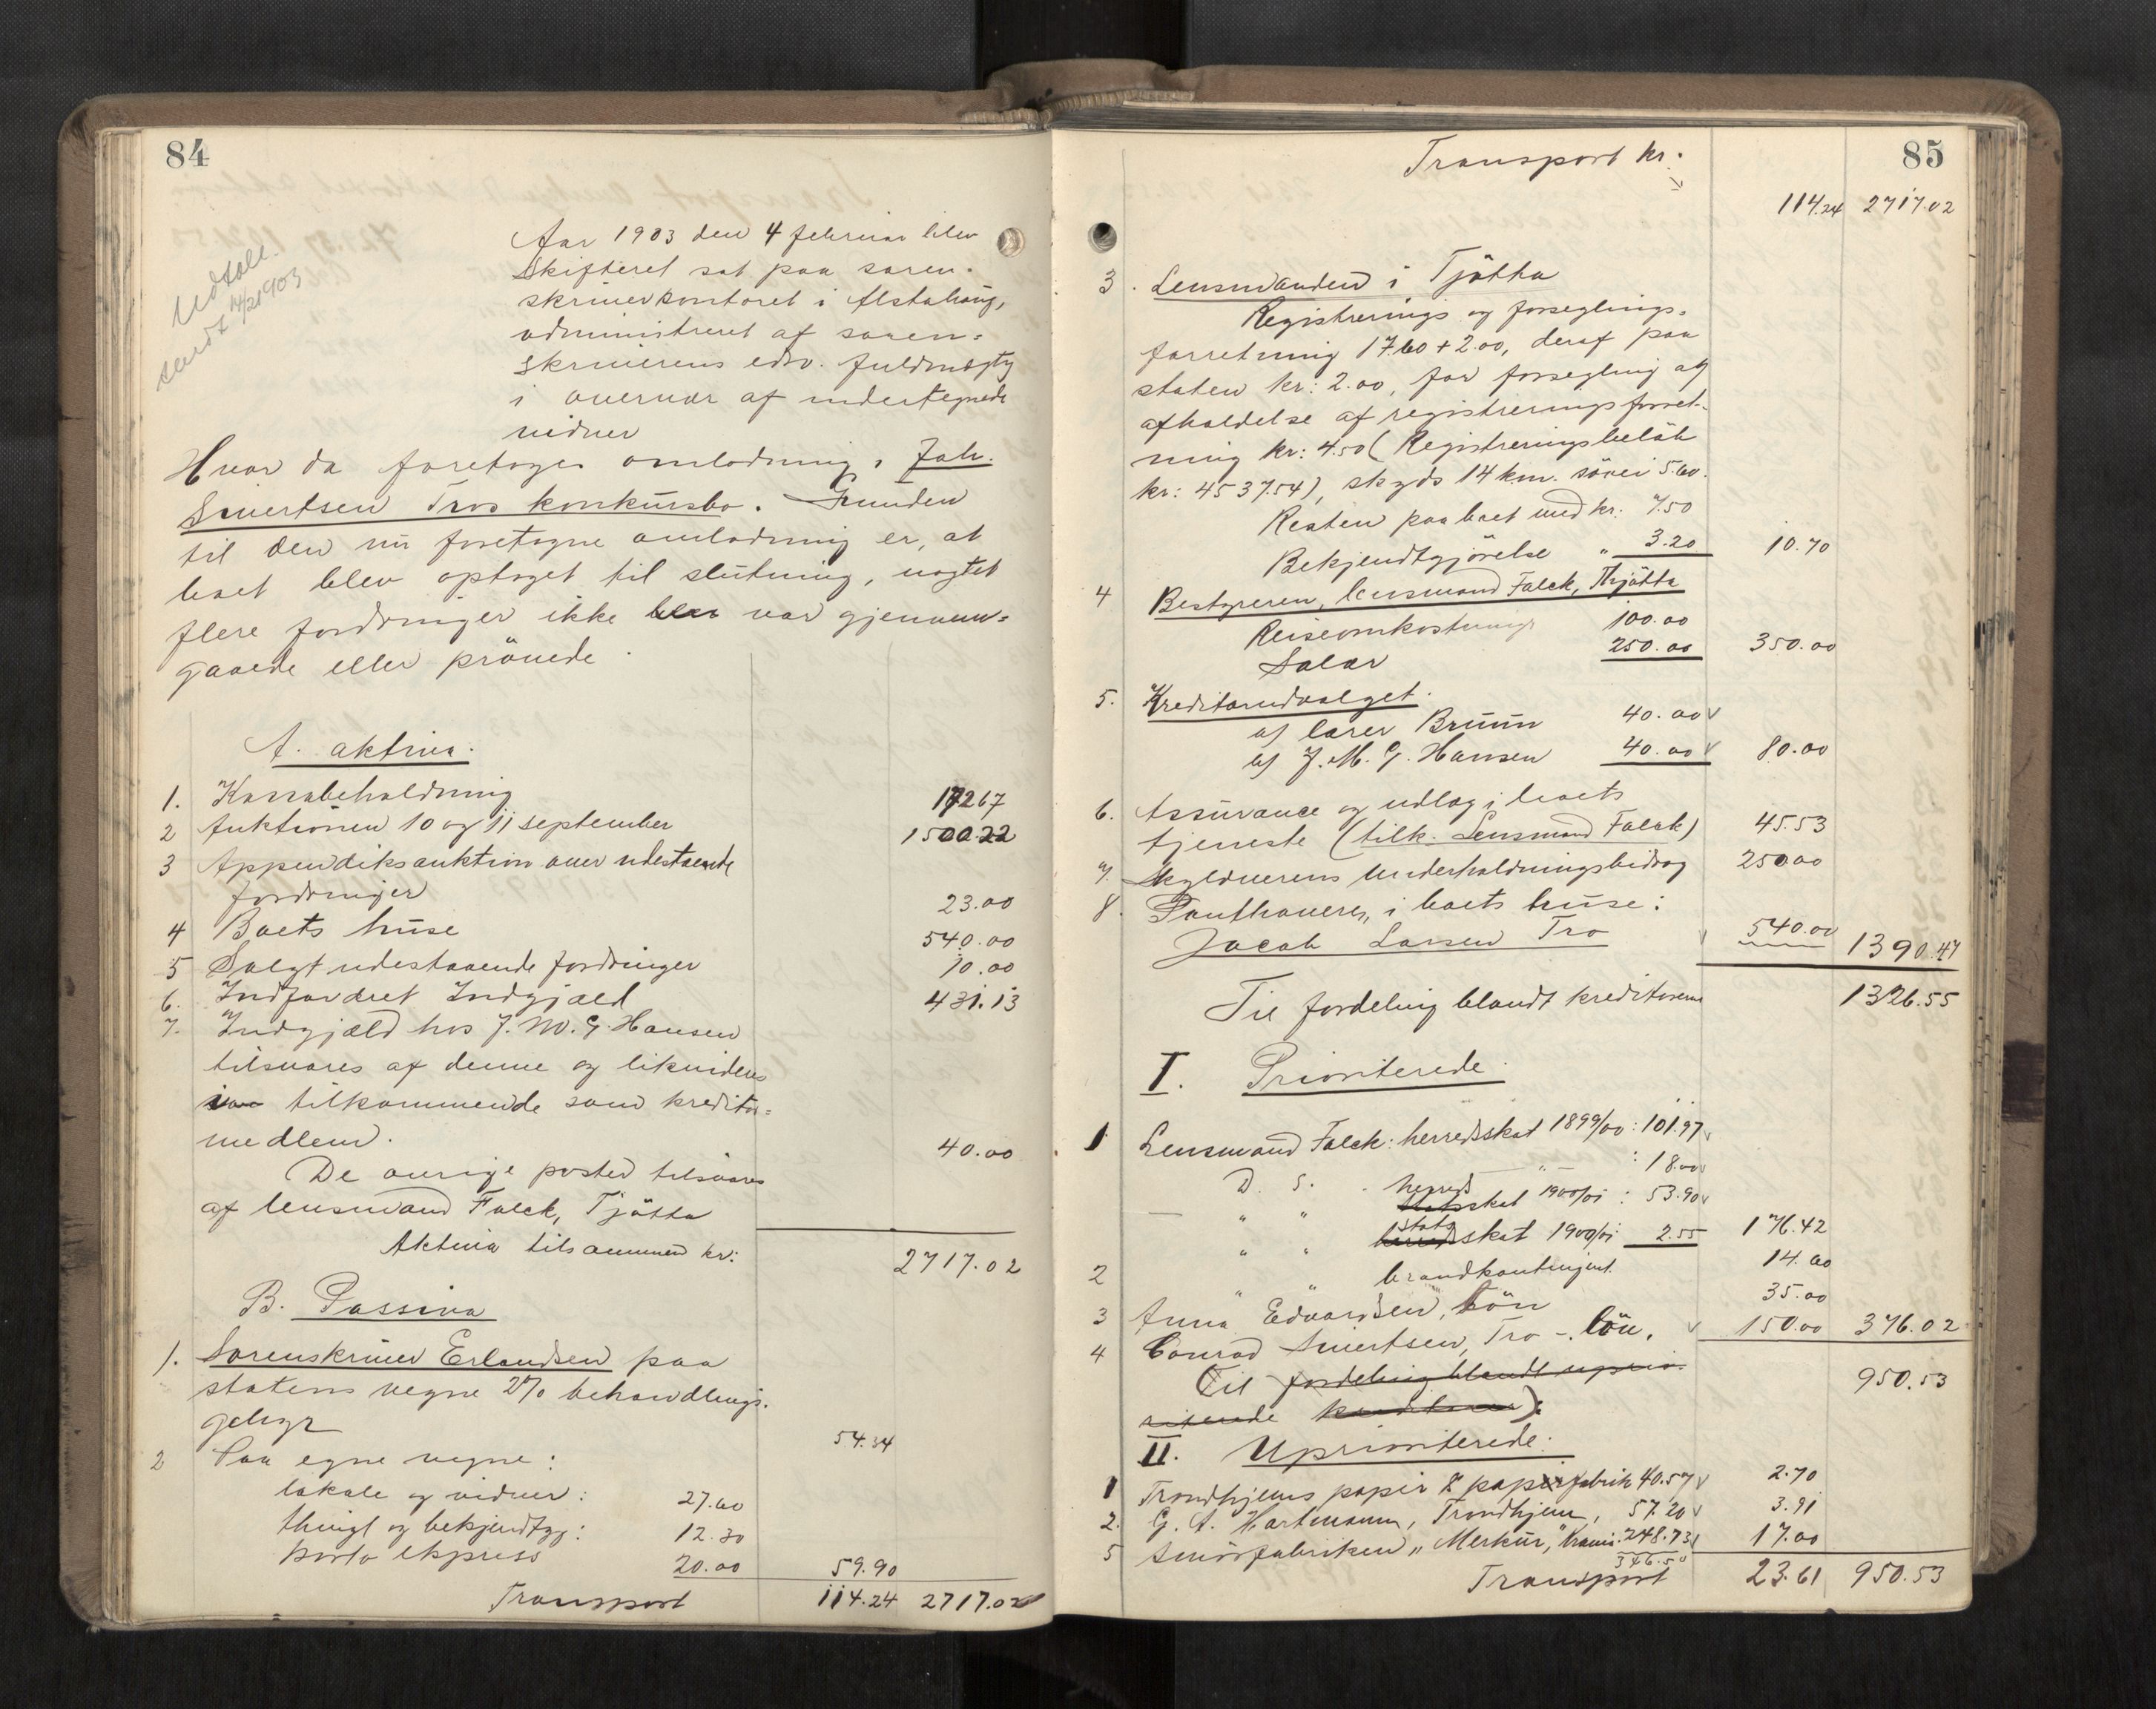 84
Udtall.
sendt 14/2 1903
Aar 1903 den 4 februar blev
Skifteret sat paa soren-
skriverkontoret i Alstahaug,
administreret af soren-
skriverens edsv. fuldmægtig
i overvær af undertegnede
vidner
Hvor da foretoges omlodning i Joh.
Sivertsen Tros konkursbo. Grunden
til den nu foretagne omlodning er, at
boet blev optaget til slutning, uagtet
flere fordringer ikke blev var gjennem-
gaaede eller prövede.
A. aktiva.
1. Kassabeholdning 17267
2 Auktionen 10 og 11 september 1500.22
3 Appendiksauktion over udestaaende
fordringer 23.00
4 Boets huse 540.00
5 Solgt udestaaende fordringer 10.00
6. Indfordret Indgjæld 431.13
7. Indgjæld hos J. M. G. Hansen
tilsvares af denne og likvideres
i tilkommende som kreditor-
medlem. 40.00
De övrige poster tilsvares
af lensmand Falck, Tjötta
Aktiva tilsammen kr: 2717.02
B. Passiva
1. Sorenskriver Erlandsen paa
statens vegne 2% behandlings-
gebyr 54.34
2 Paa egne vegne:
lokale og vidner: 27.60
thingl og bekjendtgj: 12.30
porto ekspress 20.00 59.90
Transport 114.24 2717.02
85
Transport kr.
114.24 2717.02
3. Lensmanden i Tjötta
Registrerings og forseglings-
forretning 17.60 + 2.00, deraf paa
staten kr: 2.00, for forsegling og
afholdelse af registreringsforret-
ning kr: 4.50 (Registreringsbelöb
kr: 4537.54), skyds 14 km. sövei 5.60.
Resten paa boet med kr: 7.50
Bekjendtgjörelse " 3.20 10.70
4 Bestyreren, lensmand Falck, Thjötta
Reiseomkostninger 100.00
Salær 250.00 350.00
5. Kreditorudvalget.
a) lærer Bruun 40.00
b) J. M. G. Hansen 40.00 80.00
6. Assurance og udlæg i boets
tjeneste (tilk. Lensmand Falck) 45.53
7. Skyldnerens Underholdningsbidrag 250.00
8. Panthavere, i boets huse:
Jacob Larsen Tro 540.00 1390.47
Til fordeling blandt kreditorerne 1326.55
I. Prioriterede.
1 Lensmand Falck: herredsskat 1899/00: 101.97
D. S. - " - : 18.00
" " herredsskat 1900/01: 53.90
" " statsskat 1900/01 2.55 176.42
2 " " brandkontingent. 14.60
3 Anna Edvardsen, lön 35.00
4 Conrad Sivertsen, Tro - lön. 150.00 376.02
(Til fordeling blandt uprio-
riterede kreditorer): 950.53
II. Uprioriterede:
1 Trondhjems papir & papirfabrik 40.57 2.70
2. G. A. Hartmann, Trondhjem, 57.20 3.91
5 Smörfabriken "Merkur," Krania. 248.73 17.00
346.50
Transport 23.61 950.53